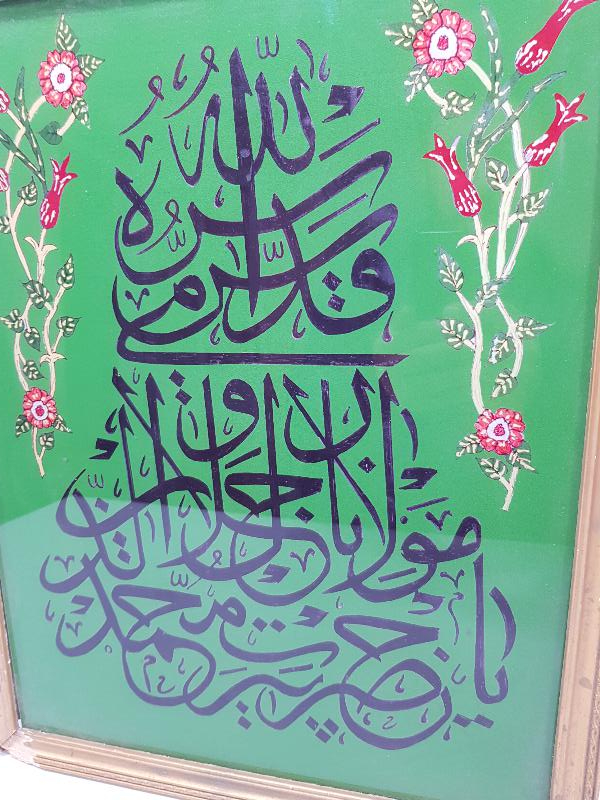 يا حضرت پير محمد
مولانا جلال الدين
رومى
قدس الله سره